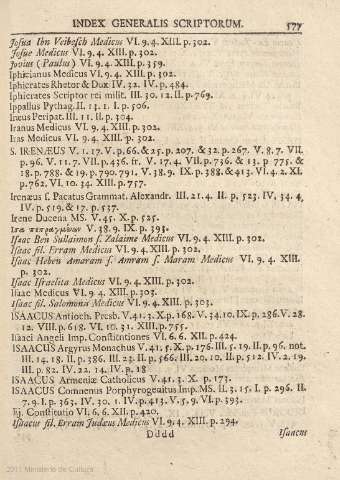 INDEX GENERALIS SCRIPTORUM. 577
Josua Ibn Veibosch Medicus VI. 9. 4. XIII. p. 302.
Josue Medicus VI. 9. 4. XIII. p. 302.
Jovius (Paulus) VI. 9. 4. XIII. p. 359.
Iphicianus Medicus VI. 9. 4. XIII. p. 302.
Iphicrates Rhetor & Dux IV. 32. IV. p. 484.
Iphicrates Scriptor rei milit. III. 30. 12. II. p. 769.
Ippallus Pythag. II. 13. 1. I. p. 506.
Ipeus Peripat. III. 11. II. p. 304.
Iranus Medicus VI. 9. 4. XIII. p. 302.
Iras Medicus VI. 9. 4. XIII. p. 302.
S. IRENÆUS V. 1. 17. V. p. 66. & 25. p. 207. & 32. p. 267. V. 8. 7. VII.
p. 96. V. 11. 7. VII. p. 436. fr. V. 17. 4. VII. p. 736. & 13. p. 775. &
18. p. 788. & 19. p. 790. 791. V. 38. 9. IX. p. 388. & 413. VI. 4. 2. XI.
p. 762. VI. 10. 34. XIII. p. 757.
Irenæus s. Pacatus Grammat. Alexandr. III. 21. 4. II. p. 523. IV. 34. 4.
IV. p. 519. & 17. p. 537.
Irene Ducena MS. V. 45. X. p. 525.
V. 38. 9. IX. p. 393.
Isaac Ben Sullaimon s. Zalaime Medicus VI. 9. 4. XIII. p. 302.
Isaac fil. Erram Medicus VI. 9. 4. XIII. p. 302.
Isaac Heben Amaram s. Amram s. Maram Medicus VI. 9. 4. XIII.
p. 302.
Isaac Israelita Medicus VI. 9. 4. XIII. p. 302.
Isaac Medicus VI. 9. 4. XIII. p. 303.
Isaac fil. Salomona Medicus VI. 9. 4. XIII. p. 303.
ISAACUS Antioch. Presb. V. 41. 3. X. p. 168. V. 34. 10. IX. p. 286. V. 28.
12. VIII. p. 618. VI. 10. 31. XIII. p. 755.
Isaaci Angeli Imp. Constitutiones VI. 6. 6. XII. p. 424.
ISAACUS Argyrus Monachus V. 41. 5. X. p. 176. III. 5. 19. II. p. 96. not.
III. 14. 18. II. p. 386. III. 23. II. p. 566. III. 20. 10. II. p. 512. IV. 2. 19.
III. p. 82. IV. 22. 14. IV. p. 18
ISAACUS Armeniæ Catholicus V. 41. 3. X. p. 173.
ISAACUS Comnenus Porphyrogenitus Imp. MS. II. 3. 15. I. p. 296. II.
7. 9. I. p. 363. IV. 30. 1. IV. p. 413. V. 5. 9. VI. p. 393.
Ej. Constitutio VI. 6. 6. XII. p. 420.
Isaacus fil. Erram Judæus Medicus VI. 9. 4. XIII. p. 294.
Dddd Isaacus
2011 Ministerio de Cultura